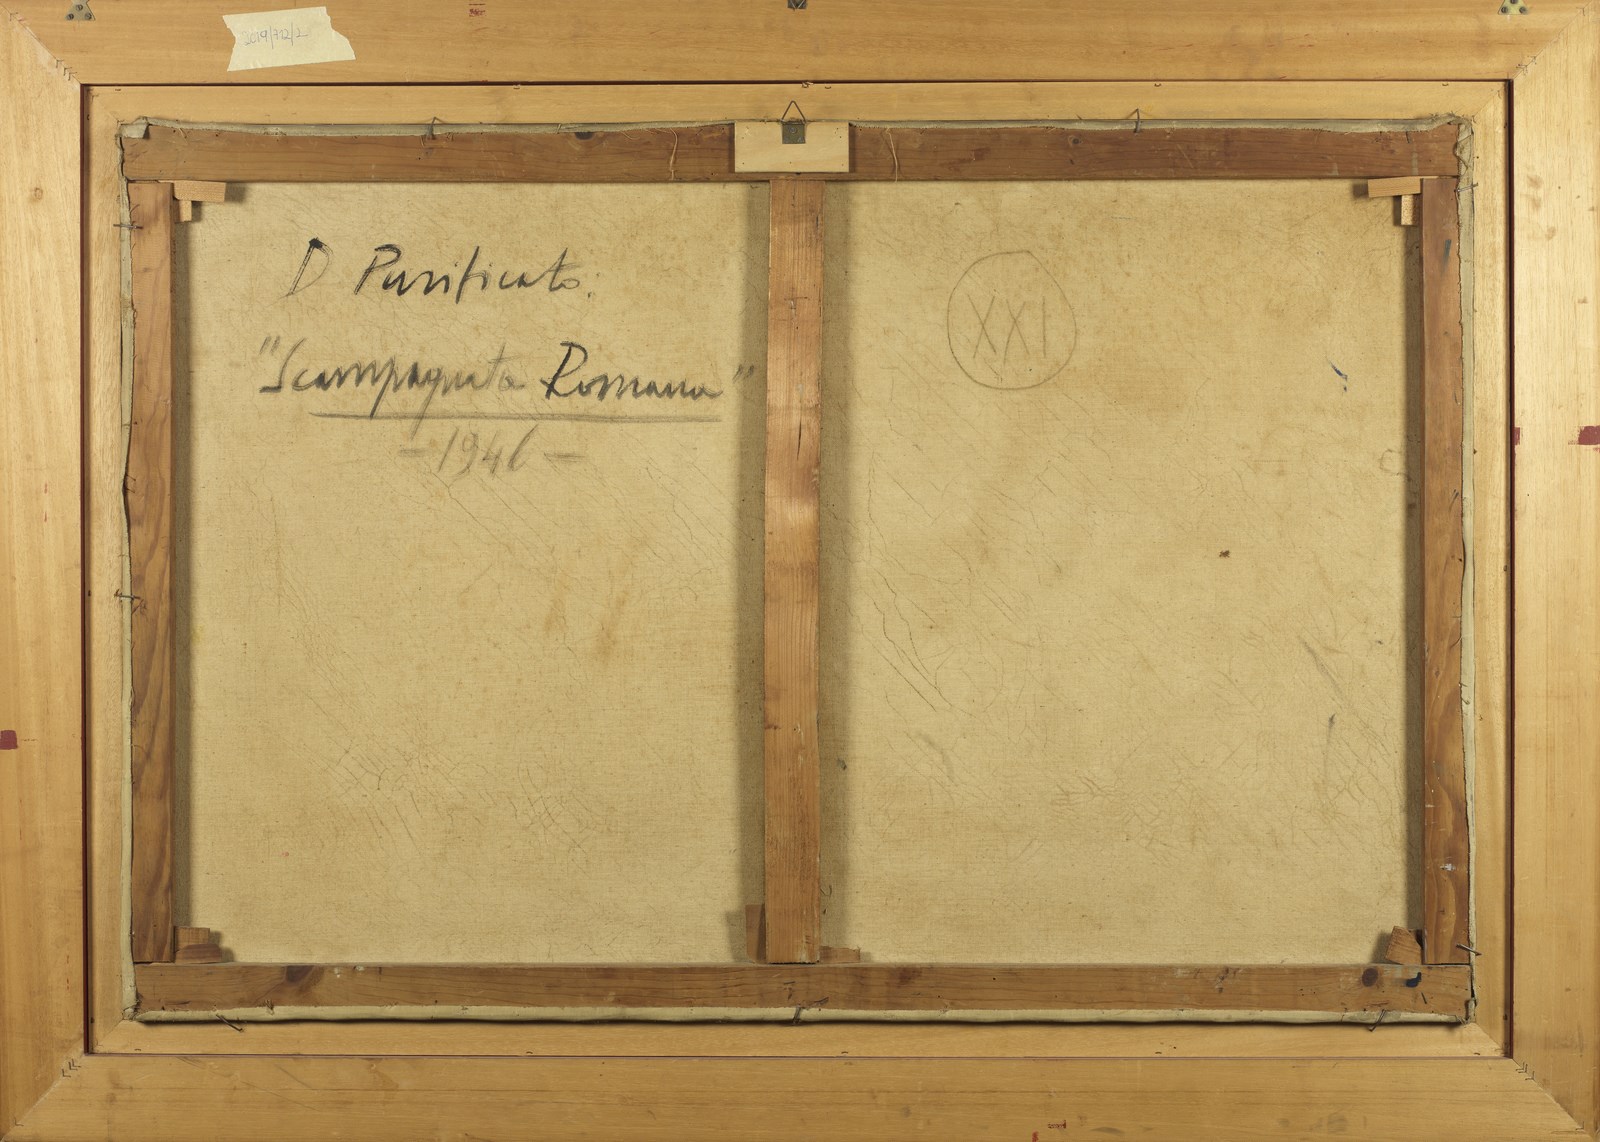 2019/712/2
D Purificato.
"Scampagnata Romana"
-1946-
XXI